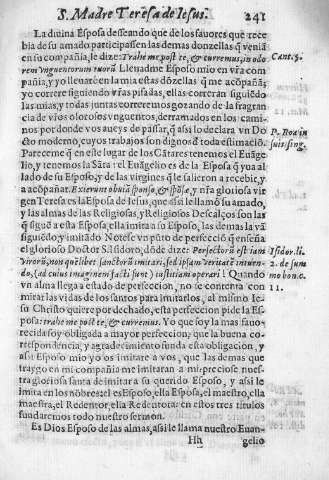 S. Madre Teresa de Iesus. 241
La diuina Esposa desseando que de los fauores que rece
bia de su amado participassen las demas donzellas q̃ venia
en su compañia, le dize: Trahe me post te, & curremus, in odo
rem vnguentorum tuorũ Lleuadme Esposo mio en vr̃a com
pañia, y pontarea en la mia estas dõzellas q̃ me acõpañã;
yo correre siguiendo vr̃as pisadas, ellas correran siguiẽdo
las mias, y todas juntas correremos gozando de la fragran
cia de vr̃os olorosos vnguentos, derramados en los cami
nos por donde vos aueys de pasar, q̃ assi lo declara vn Do
cto moderno, cuyos trabajos son dignos d̃ toda estimaciõ.
Pareceme q̃ en el lugar de los Cãtares tenemos el Euãge
lio, y tenemos la Sãta: el Euãgelio es de la Esposa q̃ yua al
lado de su Esposo, y de las virgines q̃ le salieron a recebir, y
a acõpañar. Exierunt obuiã sponso, & spõsæ, y nr̃a gloriosa vir
gen Teresa es la Esposa de Iesus, que assi la llamò su amado,
y las almas de las Religiosas, y Religiosos Descalços son las
q̃ siguẽ a esta Esposa; ella imita a su Esposo, las demas la vã
siguiẽdo y imitãdo. Notese vn pũto de perfecciõ q̃ enseña
el glorioso Doctor S. Isidoro, dõde dize: Perfectorũ est iam
virorũ, non quẽlibet sanctorũ imitari, sed ipsam veritatẽ intuen
do, (ad cuius imaginem facti sunt) iustitiam operari. Quando
vn alma llega a estado de perfeccion, no se contenta con
mirar las vidas de los santos para imitarlos, al mismo Ie-
su Christo quiere por dechado, esta perfeccion pide la Es-
posa: trahe me post te, & curremus. Yo que soy la mas fauo-
recida soy obligada a mayor perfeccion; que la buena co-
rrespondencia, y agradecimiento funda esta obligacion, y
assi Esposo mio yo os imitare a vos, que las demas que
traygo en mi compañia me imitaran a mi: preciose nues-
tra gloriosa santa de imitar a su querido Esposo, y assi le
imita en los nõbres: el es Esposo, ella Esposa, el maestro, ella
maestra, el Redentor, ella Redentora: en estos tres titulos
fundaremos todo nuestro sermon.
Es Dios Esposo de las almas, assi le llama nuestro Euan-
Hh gelio
Cant. 5.
P. Roa in
suis sing.
Isidor. li.
2. de sum
mo bon. c.
11.